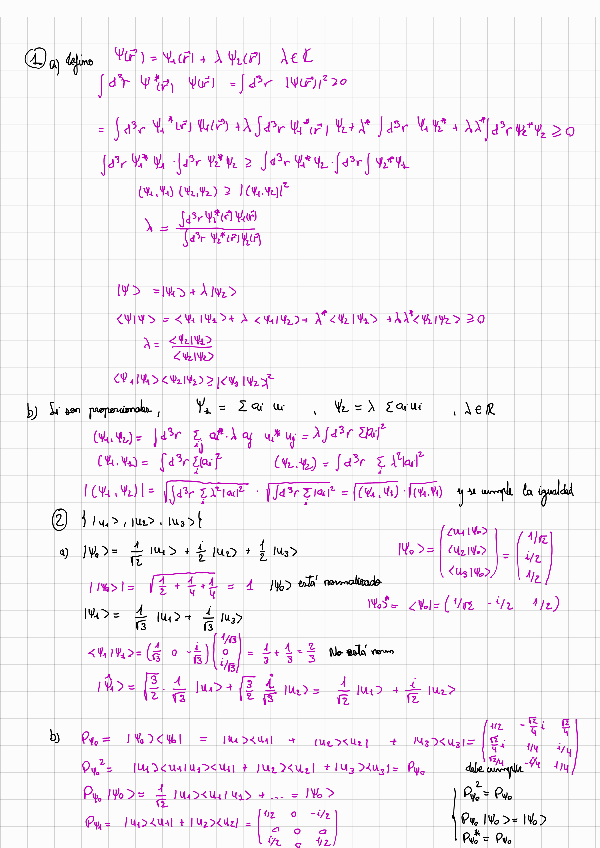 1 a) defino ψ(r⃗) = ψ₁(r⃗) + λ ψ₂(r⃗) λ ∈ ℂ
∫d³r ψ*(r⃗) ψ(r⃗) = ∫d³r |ψ(r⃗)|² ≥ 0
= ∫d³r ψ₁*(r⃗) ψ₁(r⃗) + λ ∫d³r ψ₁*(r⃗) ψ₂ + λ* ∫d³r ψ₁ψ₂* + λλ* ∫d³r ψ₂*ψ₂ ≥ 0
∫d³r ψ₁*ψ₁ · ∫d³r ψ₂*ψ₂ ≥ ∫d³r ψ₁*ψ₂ · ∫d³r ∫ψ₂*ψ₁
(ψ₁,ψ₁)(ψ₂,ψ₂) ≥ |(ψ₁,ψ₂)|²
λ = ∫d³r ψ₂*(r⃗)ψ₁(r⃗) / ∫d³r ψ₂*(r⃗)ψ₂(r⃗)
|ψ> = |ψ₁> + λ|ψ₂>
<ψ|ψ> = <ψ₁|ψ₁> + λ <ψ₁|ψ₂> + λ* <ψ₂|ψ₁> + λλ* <ψ₂|ψ₂> ≥ 0
λ = <ψ₂|ψ₁> / <ψ₂|ψ₂>
<ψ₁|ψ₁><ψ₂|ψ₂> ≥ |<ψ₁|ψ₂>|²
b) Si son proporcionales, ψ₁ = Σ aᵢ uᵢ , ψ₂ = λ Σ aᵢ uᵢ , λ ∈ ℝ
(ψ₁,ψ₂) = ∫d³r Σ aᵢ* · λ aⱼ uᵢ* uⱼ = λ ∫d³r Σ|aᵢ|²
(ψ₁,ψ₁) = ∫d³r Σ|aᵢ|² (ψ₂,ψ₂) = ∫d³r Σ λ²|aᵢ|²
|(ψ₁,ψ₂)| = √(∫d³r Σ λ²|aᵢ|²) · √(∫d³r Σ|aᵢ|²) = √(ψ₁,ψ₁) · √(ψ₁,ψ₁) y se cumple la igualdad
2 {|u₁>, |u₂>, |u₃>}
a) |ψ₀> = 1/√2 |u₁> + i/2 |u₂> + 1/2 |u₃> |ψ₀> = (<u₁|ψ₀> <u₂|ψ₀> <u₃|ψ₀>) = (1/√2 i/2 1/2)
||ψ₀>| = √(1/2 + 1/4 + 1/4) = 1 |ψ₀> está normalizado
|ψ₀>* = <ψ₀| = (1/√2 -i/2 1/2)
|ψ₁> = 1/√3 |u₁> + i/√3 |u₃>
<ψ₁|ψ₁> = (1/√3 0 -i/√3) (1/√3 0 i/√3) = 1/3 + 1/3 = 2/3 No está norm
|ψ̂₁> = √(3/2) · 1/√3 |u₁> + √(3/2) i/√3 |u₂> = 1/√2 |u₁> + i/√2 |u₂>
b) Pψ₀ = |ψ₀><ψ₀| = |u₁><u₁| + |u₂><u₂| + |u₃><u₃| = (1/2 -√2/4 i √2/4 √2/4 i 1/4 i/4 √2/4 -i/4 1/4)
Pψ₀² = |u₁><u₁|u₁><u₁| + |u₂><u₂| + |u₃><u₃| = Pψ₀ debe cumplir
Pψ₀ |ψ₀> = 1/√2 |u₁><u₁|u₁> + ... = |ψ₀> Pψ₀² = Pψ₀
Pψ₁ = |u₁><u₁| + |u₂><u₂| = (1/2 0 -i/2 0 0 0 i/2 0 1/2) Pψ₀ |ψ₀> = |ψ₀>
Pψ₀* = Pψ₀